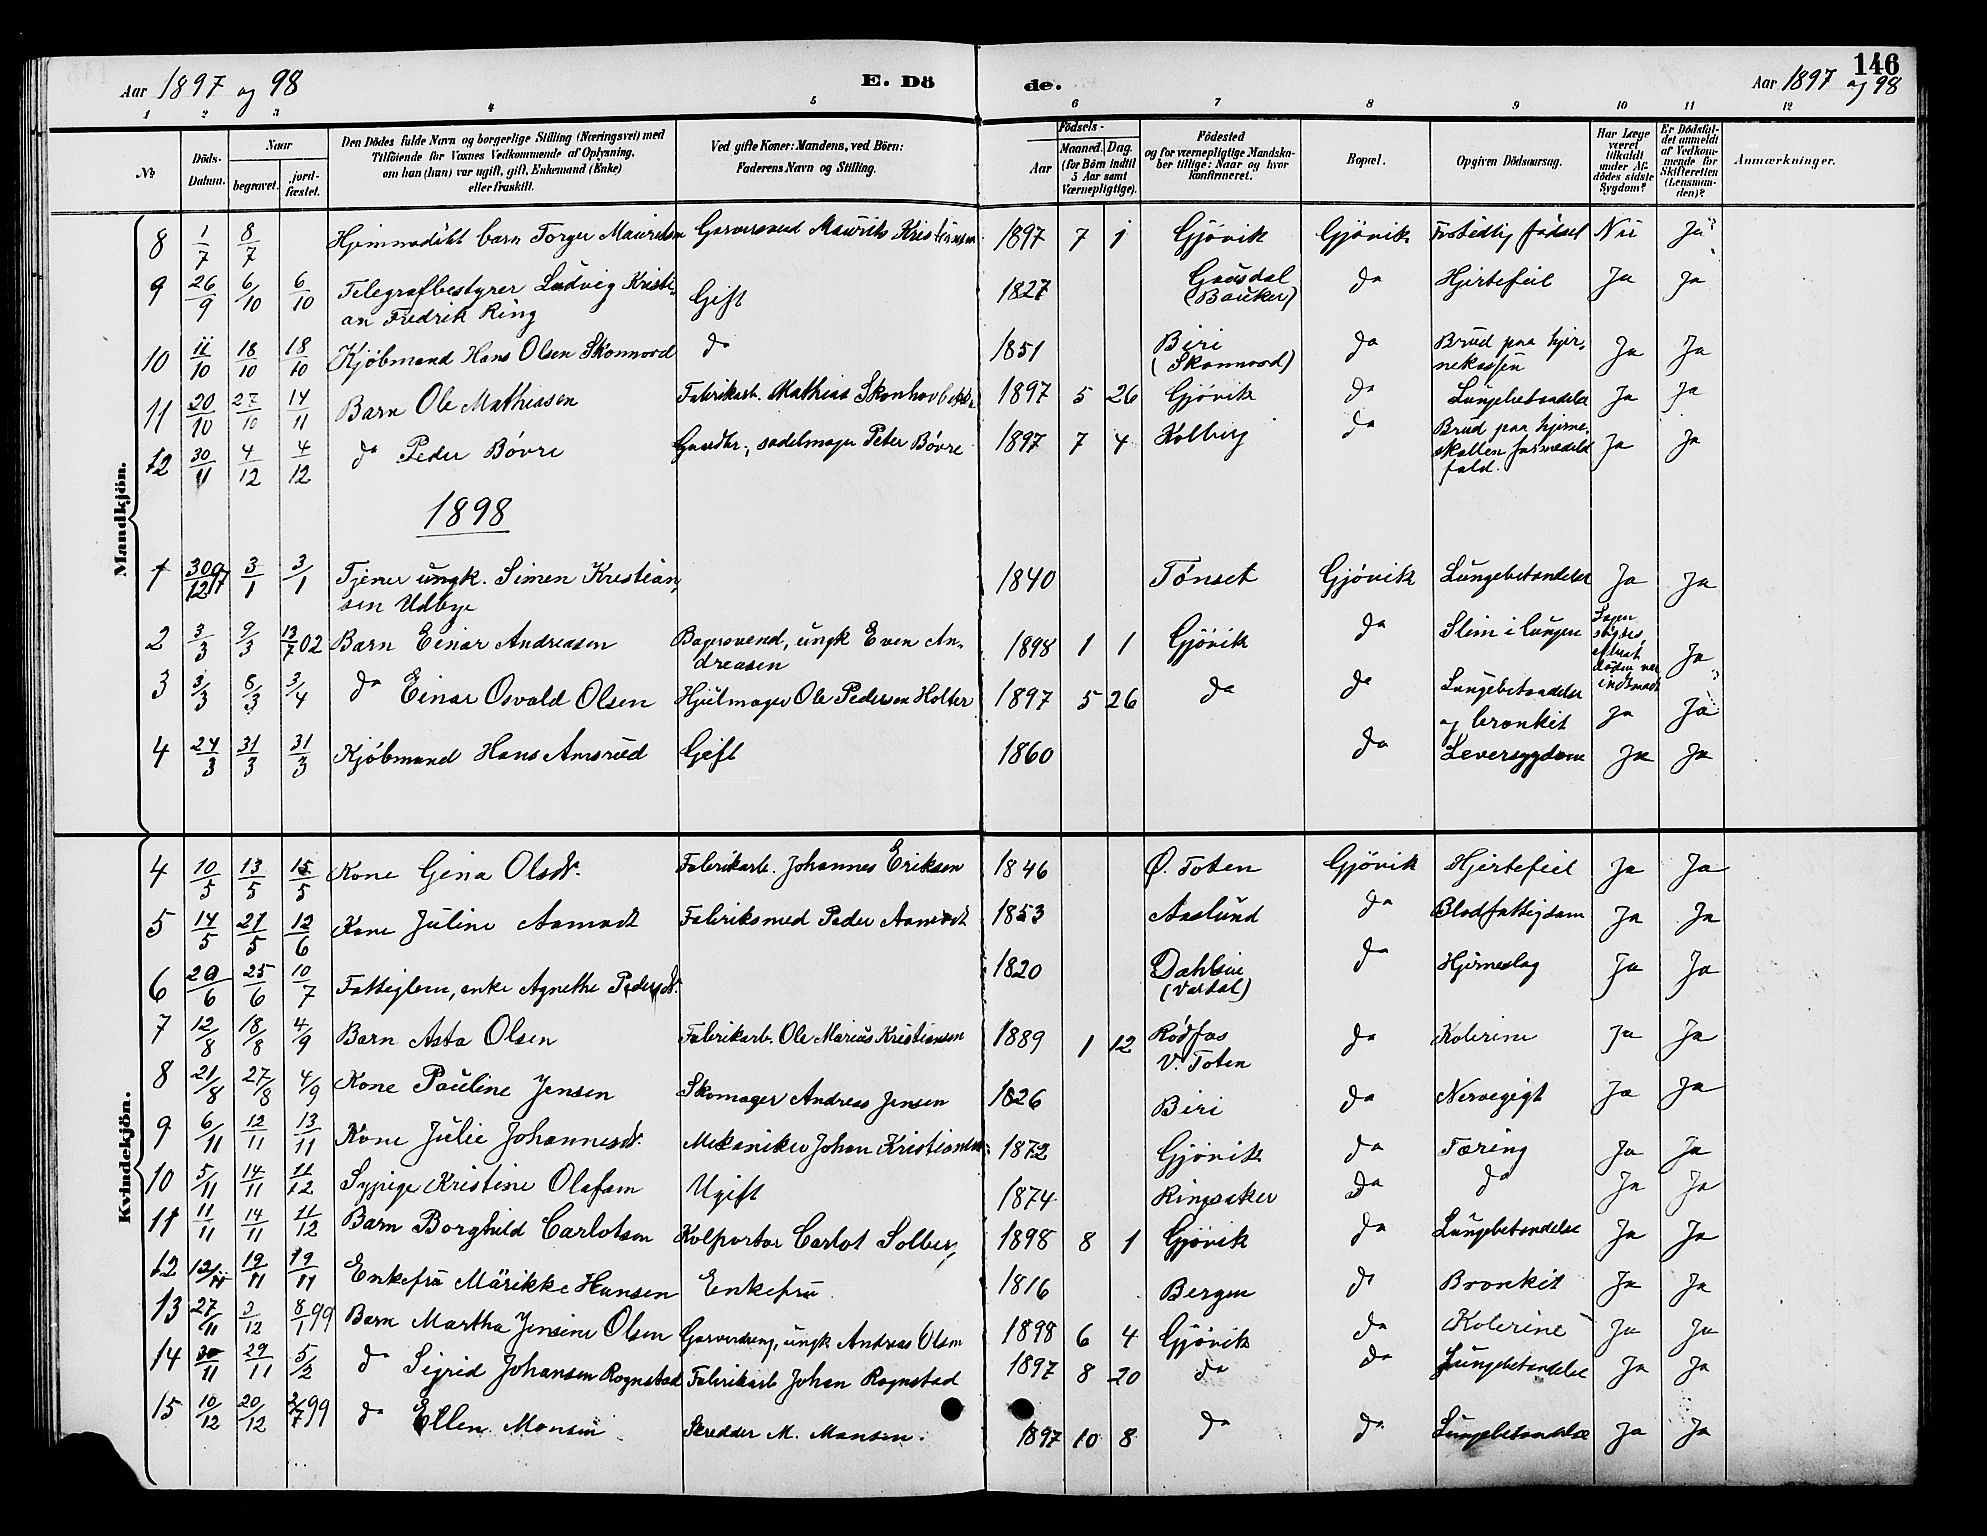 Aar 1897 og 98 E. Dö de. Aar 1897 og 98 146
1 2 3 4 5 6 7 8 9 10 11 12
No Döds-Datum. Naar begravet. jord-fæstet. Den Dödes fulde Navn og borgerlige Stilling (Næringsvei) med Tilföiende for Voxnes Vedkommende af Oplysning, om han (hun) var ugift, gift, Enkemand (Enke) eller fraskilt. Ved gifte Koner: Mandens, ved Börn: Faderens Navn og Stilling. Födsels- Aar Maaned. Dag. (for Börn indtil 5 Aar samt Værnepligtige). Födested og for værnepligtige Mandskaber tillige: Naar og hvor konfirmeret. Bopæl. Opgiven Dödsaarsag. Har Læge været tilkaldt under Afdödes sidste Sygdom? Er Dödsfaldet anmeldt af Vedkommende for Skifteretten (Lensmanden)? Anmærkninger.
Mandkjön.
8 1/7 8/7 Hjemmedöbt barn Torger Mauritsen Garversvend Maurits Kristiansen 1897 7 1 Gjövik Gjövik For tidlig födsel Nei Ja
9 26/9 6/10 6/10 Telegrafbestyrer Ludvig Kristi- Gift 1827 Gausdal do Hjertefeil Ja Ja
an Fredrik Ring (Bauker)
10 11/10 18/10 18/10 Kjöbmand Hans Olsen Skonnord do 1851 Biri do Brud paa hjer- Ja Ja
(Skonnord) nekassen
11 20/10 27/10 14/11 Barn Ole Mathiassen Fabrikarb. Mathias 1897 5 26 Gjövik do Lungebetændelse Ja Ja
12 30/11 4/12 4/12 do Peder Bövre Gaardbr., sadelmager Peter Bövre 1897 7 4 Kolberg do Brud paa hjerne- Ja Ja
skallen formedelst
fald.
1898
1 30/12 97 3/1 3/1 Tjener ungk. Simen Kristian, 1840 Tönset Gjövik Lungebetændelse Ja Ja
sen Udbye
2 3/3 9/3 13/7 02 Barn Einar Andreasen Bagersvend, ungk Even An- 1898 1 1 Gjövik do Slim i lungen Ja
dreasen
3 3/3 8/3 3/4 do Einar Osvald Olsen Hjulmager Ole Pedersen Holter 1897 5 26 do do Lungebetændelse Ja Ja
og bronkit
4 24/3 31/3 31/3 Kjöbmand Hans Amsrud Gift 1860 do Leversygdom Ja Ja
Kvindekjön.
4 10/5 13/5 15/5 Kone Gina Olsdr. Fabrikarb. Johannes Eriksen 1846 Ö. Toten Gjövik Hjertefeil Ja Ja
5 14/5 21/5 12/6 Kone Juline Aamodt Fabriksmed Peder Aamodt 1853 Aaslund do Blodfattigdom Ja Ja
6 20/6 25/6 10/7 Fattiglem, enke Agnethe Pedersdr. 1820 Dahlsin do Hjerneslag Ja Ja
(Vardal)
7 12/8 18/8 4/9 Barn Asta Olsen Fabrikarb. Ole Marius Kristiansen 1889 1 12 Rödfos do Kolerine Ja Ja
V. Toten
8 21/8 27/8 4/9 Kone Pauline Jensen Skomager Andreas Jensen 1826 Biri do Nervegigt Ja Ja
9 6/11 12/11 13/11 Kone Julie Johannesdr. Mekaniker Johan Kristiansen 1872 Gjövik do Tæring Ja Ja
10 5/11 14/11 11/12 Sypige Kristine Olafsen Ugift 1874 Ringsaker do do Ja Ja
11 11/11 14/11 11/12 Barn Borghild Carlotsen Kolportør Carlot Solberg 1898 8 1 Gjövik do Lungebetændelse Ja Ja
12 12/11 19/11 19/11 Enkefru Marikke Hansen Enkefru 1816 Bergen do Bronkit Ja Ja
13 27/11 3/12 8/1 99 Barn Martha Jensine Olsen Garverdreng, ungk Andreas Olsen 1898 6 4 Gjövik do Kolerine Ja Ja
14 30/11 29/11 5/2 do Sigrid Johansen Rognstad Fabrikarb Johan Rognstad 1897 8 20 do do Lungebetændelse Ja Ja
15 10/12 20/12 2/7 99 do Ellen Monsen Skredder M. Monsen. 1897 10 8 do do Lungebetændelse Ja Ja